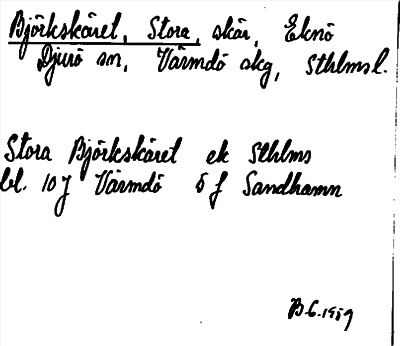 Björkskäret, Stora, skär, Eknö
Djurö sn, Värmdö skg, Sthlms l.
Stora Björkskäret ek Sthlms
bl. 10 J Värmdö S f Sandhamn
B-G. 1959